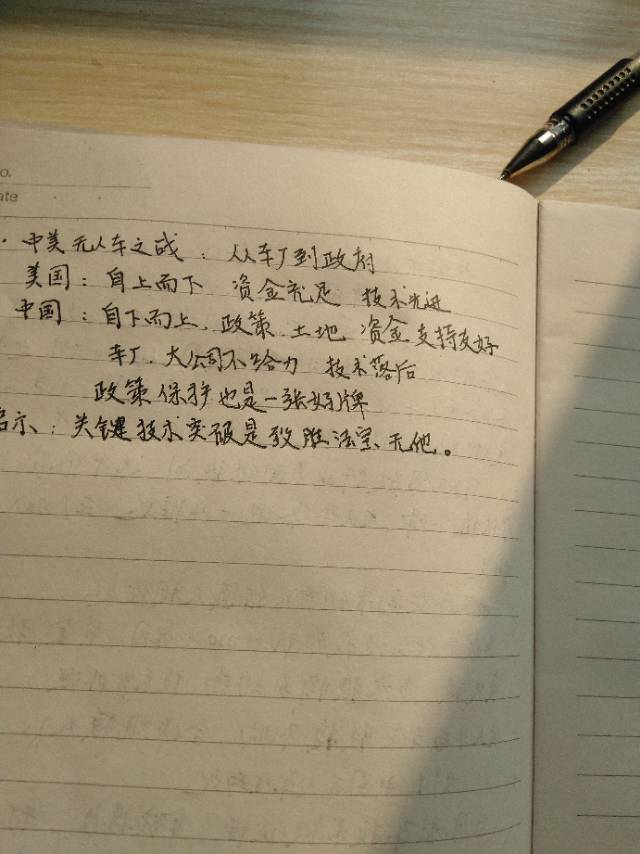 o.
ate
· 中美无人车之战：从车厂到政府
美国：自上而下 资金充足 技术先进
中国：自下而上，政策 土地 资金支持友好
车厂、大公司不给力 技术落后
政策保护也是一张好牌
启示：关键技术突破是致胜法宝，无他。